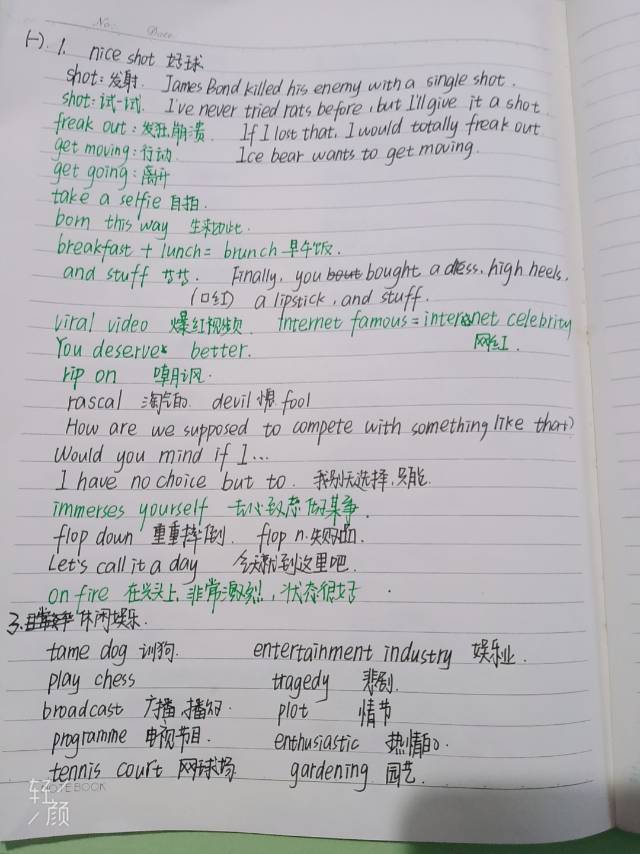 No.
Date.
(一). 1. nice shot 好球
shot: 发射. James Bond killed his enemy with a single shot.
shot: 试一试. I've never tried rats before, but I'll give it a shot.
freak out: 发狂,崩溃. If I lost that, I would totally freak out
get moving: 行动. Ice bear wants to get moving.
get going: 离开
take a selfie 自拍.
born this way 生来如此.
breakfast + lunch = brunch 早午饭.
and stuff 等等. Finally, you bought a dress, high heels,
(口红) a lipstick, and stuff.
viral video 爆红视频. Internet famous = internet celebrity
网红.
You deserve better.
rip on 嘲讽.
rascal 淘气的. devil 恨 fool
How are we supposed to compete with something like that?
Would you mind if I...
I have no choice but to. 我别无选择,只能.
immerses yourself
flop down 重重摔倒. flop n. 失败
Let's call it a day 今天就到这里吧.
on fire 在兴头上, 非常激烈, 状态很好.
3. 休闲娱乐.
tame dog 训狗. entertainment industry 娱乐业.
play chess tragedy 悲剧.
broadcast 广播,播 plot 情节
programme 电视节目. enthusiastic 热情的.
tennis court 网球场 gardening 园艺.
轻颜
NOTEBOOK